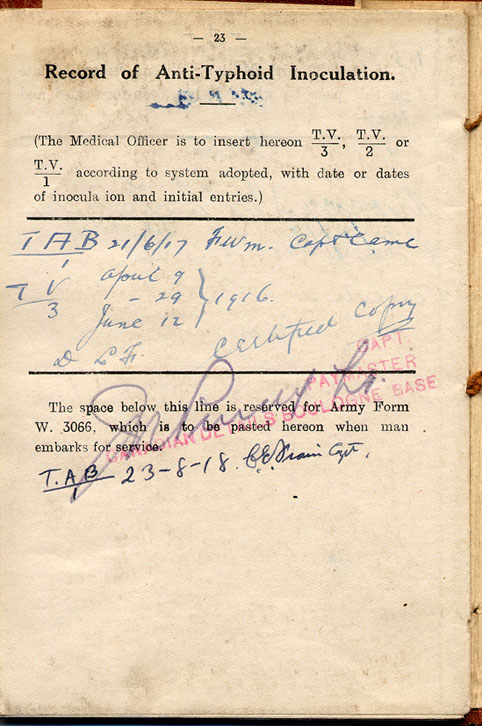 — 23 —
Record of Anti-Typhoid Inoculation.
(The Medical Officer is to insert hereon T.V./3, T.V./2 or
T.V./1 according to system adopted, with date or dates
of inocula ion and initial entries.)
TAB/1 21/6/17 F.W.m. Capt Camc
TV/3 April 9
- 29 } 1916.
June 12
Certified Copy
CAPT.
PAYMASTER
CANADIAN DETAILS BOULOGNE BASE
The space below this line is reserved for Army Form
W. 3066, which is to be pasted hereon when man
embarks for service.
T.AB/1 23-8-18. Capt.